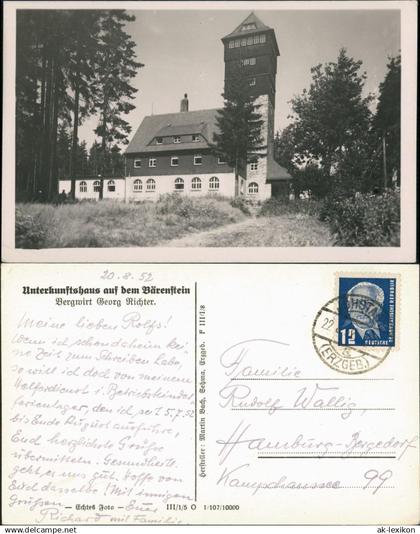 20.8.52
Unterkunftshaus auf dem Bärenstein
Bergwirt Georg Richter.
Meine lieben Rolfs!
Wenn ich schon daheim keine
Zeit zum Schreiben habe,
so will ich doch von meinem
i. Betriebskinder-
ferienlager, den ich seit 5.7.52
bis Ende August ausführe,
Euch herzlichste Grüße
übermitteln. Gesundheitl.
geht es uns gut, hoffe von
Euch dasselbe! Mit innigen
Grüßen Euer
Richard mit Familie
— Echtes Foto —
III/1/5 O 1/107/10000
Hersteller: Martin Bach, Sehma, Erzgeb. F III/1/8
(ERZGEB.)
12
DEUTSCHE
Familie
Rudolf Wallig
Hamburg-Bergedorf
Kampchaussee 99
© ak-lexikon.com